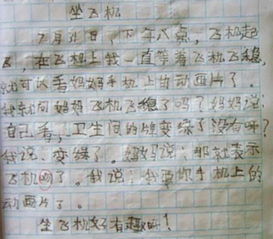 坐飞机
7月11日,下午八点,飞机起
飞,在飞机上我一直等着飞机飞稳,
就可以看妈妈手机上的动画片了。
我就问妈妈飞机飞稳了吗?妈妈说:
自己看,卫生间的牌变绿了没有呀?
我说:变绿了。妈妈说:那就表示
飞机稳了。我说:我要你手机上的
动画片了。
坐飞机好有趣啊!